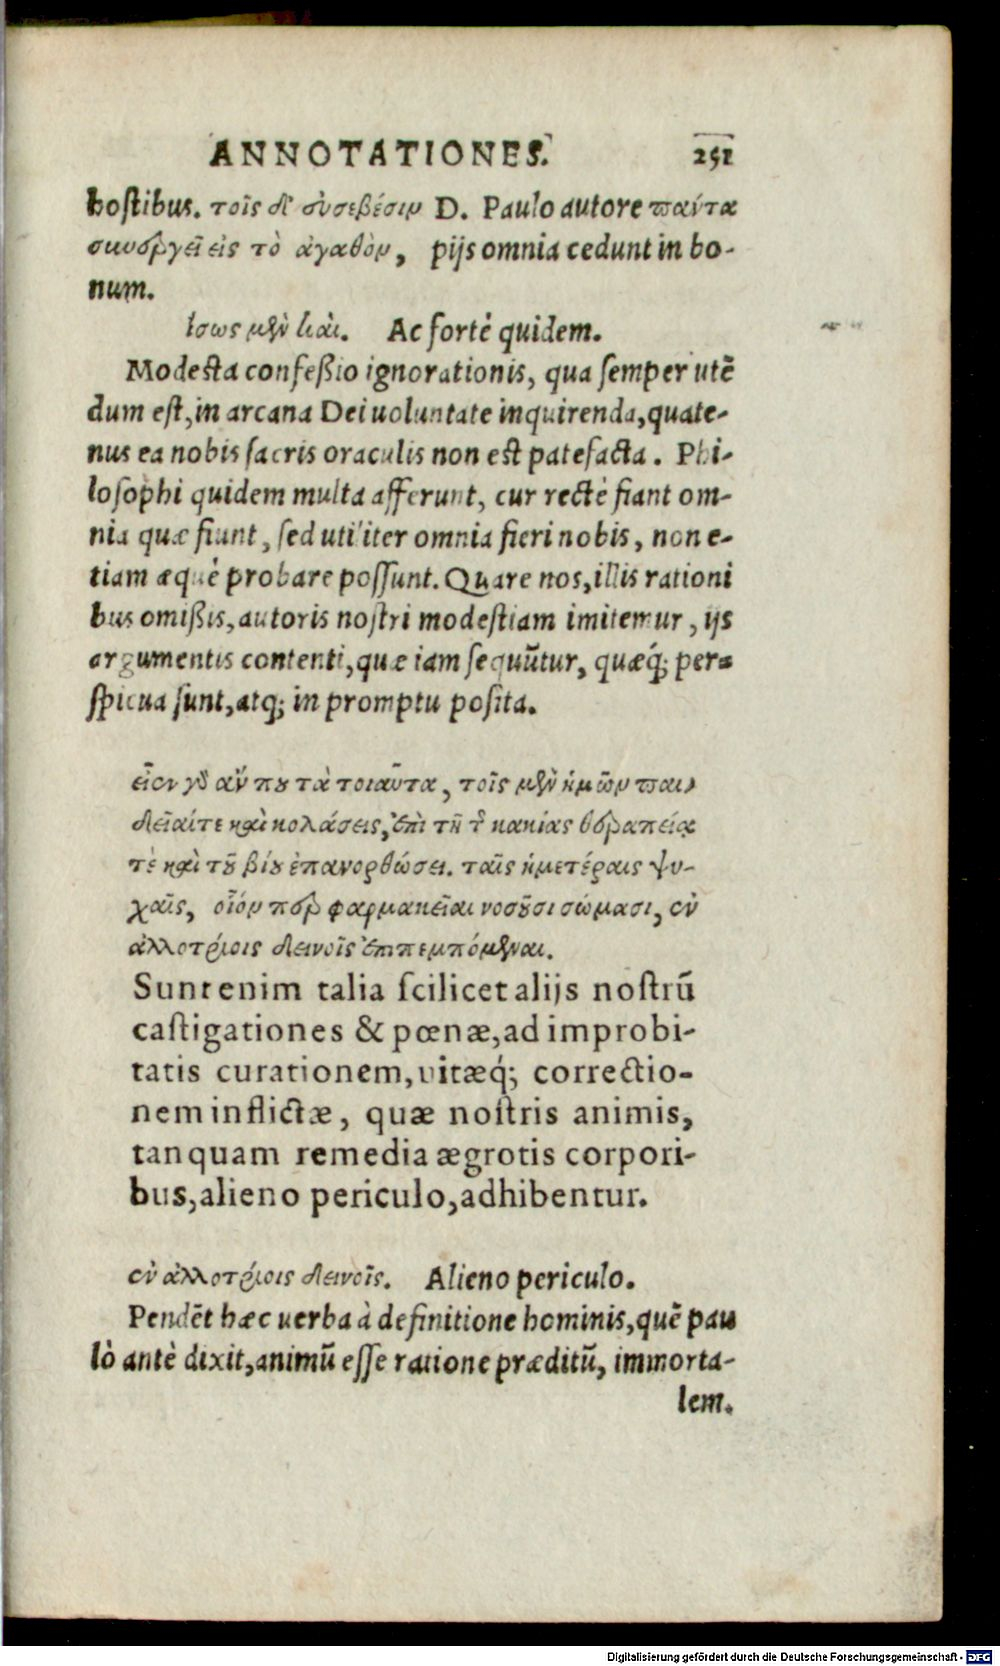 ANNOTATIONES. 251
hostibus. τοῖς δ' εὐσεβέσιν D. Paulo autore πάντα
συνεργεῖ εἰς τὸ ἀγαθὸν, pijs omnia cedunt in bo-
num.
ἴσως μὲν καὶ. Ac fortè quidem.
Modesta confeßio ignorationis, qua semper utē
dum est, in arcana Dei uoluntate inquirenda, quate-
nus ea nobis sacris oraculis non est patefacta. Phi-
losophi quidem multa afferunt, cur rectè fiant om-
nia quæ fiunt, sed utiliter omnia fieri nobis, non e-
tiam æquè probare possunt. Quare nos, illis rationi
bus omißis, autoris nostri modestiam imitemur, ijs
argumentis contenti, quæ iam sequūtur, quæq́; per-
spicua sunt, atq; in promptu posita.
εἶεν γὸ ἄν που τὰ τοιαῦτα, τοῖς μὲν ἡμῶν παι-
δεῖαί τε καὶ κολάσεις, ἐπὶ τῇ τ κακίας θεραπείᾳ
τὲ καὶ τοῦ βίου ἐπανορθώσει. ταῖς ἡμετέραις ψυ-
χαῖς, οἷόν περ φαρμακεῖαι νοσοῦσι σώμασι, ἐν
ἀλλοτρίοις δεινοῖς ἐπιπεμπόμεναι.
Sunt enim talia scilicet alijs nostrū
castigationes & pœnæ, ad improbi-
tatis curationem, vitæq́; correctio-
nem inflictæ, quæ nostris animis,
tanquam remedia ægrotis corpori-
bus, alieno periculo, adhibentur.
ἐν ἀλλοτρίοις δεινοῖς. Alieno periculo.
Pendēt hæc uerba à definitione hominis, quē pau
lò antè dixit, animū esse ratione præditū, immorta-
lem.
Digitalisierung gefördert durch die Deutsche Forschungsgemeinschaft - DFG